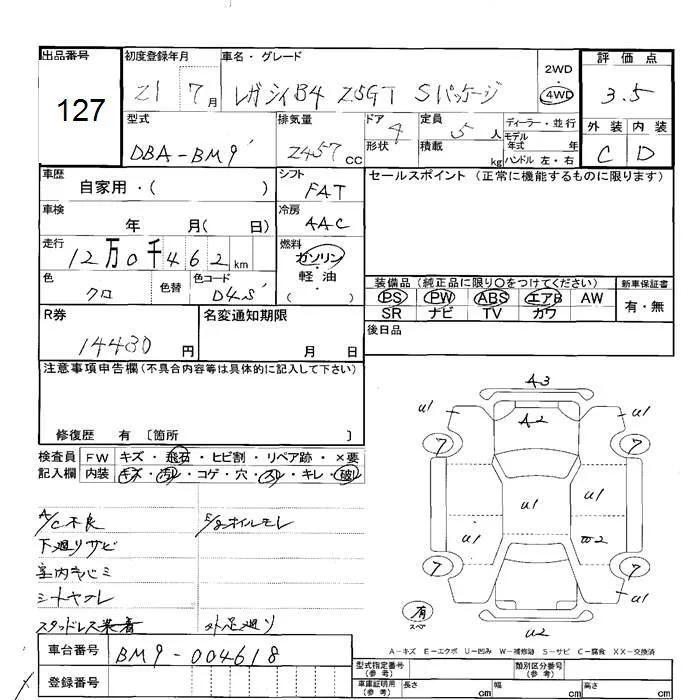 出品番号
127
初度登録年月
21 7月
車名・グレード
レガシィB4 2.5GT Sパッケージ
2WD
4WD
評価点
3.5
外装 内装
C D
型式
DBA-BM9
排気量
2457cc
ドア 4
形状
定員 5人
積載 kg
ディーラー・並行
モデル年式 年
ハンドル 左・右
車歴
自家用・( )
シフト
FAT
車検
年 月( 日)
冷房
AAC
走行
12万0千462km
燃料
ガソリン・軽油
( )
色
クロ
色替
色コード
D4S
セールスポイント (正常に機能するものに限ります)
装備品(純正品に限り○をつけてください)
PS PW ABS エアB AW
SR ナビ TV カワ
新車保証書
有・無
後日品
R券
14480円
名変通知期限
月 日
注意事項申告欄(不具合内容等は具体的に記入して下さい)
修復歴 有 〔箇所 〕
検査員記入欄
FW キズ・飛石・ヒビ割・リペア跡・×要
内装 キズ・汚レ・コゲ・穴・スレ・キレ・破レ
A/C不良
E/gオイルモレ
下廻りサビ
室内キバミ
シートヤブレ
スタッドレス装着
外 足廻り
車台番号
BM9-004618
登録番号
A3
A2
U1 U1
7 7
U1
U1 U1
U1 W2
7 7
U1 U1
有
スペア
U2
A-キズ E-エクボ U-凹み W-補修跡 S-サビ C-腐食 XX-交換済
型式指定番号(参考)
類別区分番号(参考)
車庫証明用(参考)
長さ cm
幅 cm
高さ cm